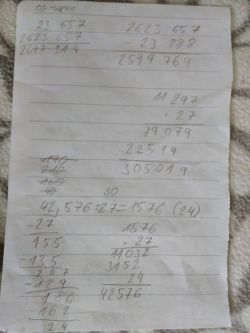 23 657
2623 657
2647 314
2623 657
- 23 888
2599 769
11 297
. 27
79079
22594
305019
40
30
42,576:27=1576 (24)
-27
155
-135
207
-189
186
162
24
1576
. 27
11032
3152
24
42576